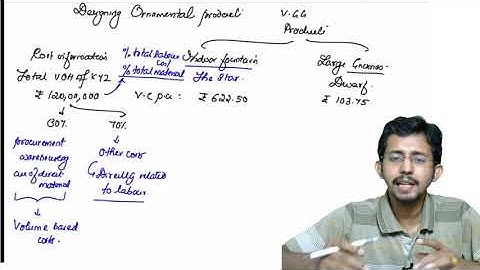 Designing Ornamental product
V.GG
Product
% total labour cost
% total material
Indoor fountain
The Star
Large Gnomes
Dwarf
Total VOH of XYZ
₹ 120,00,000
V.C p.u :
₹ 622.50
₹ 103.75
30%
70%
procurement
warehousing
of direct
material
Other cost
Directly related
to labour
Volume based
costs.